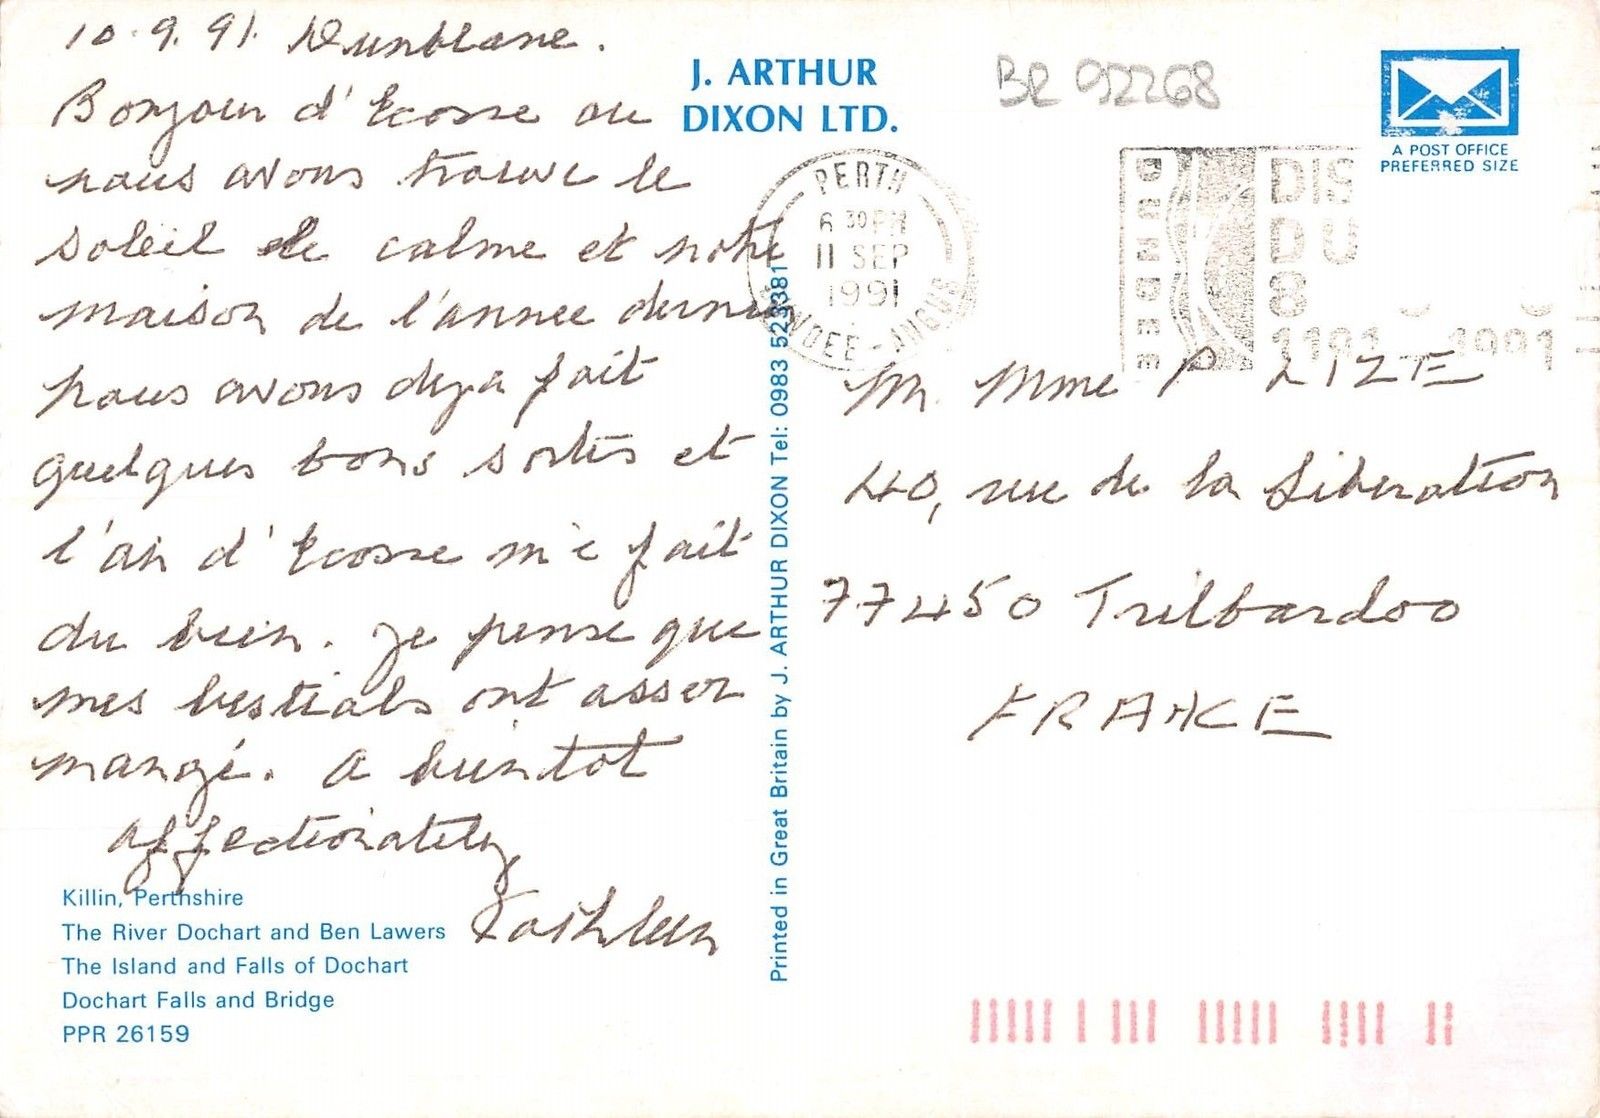 10.9.91. Dunblane.
Bonjour d'Ecosse ou
nous avons trouve le
soleil de calme et notre
maison de l'annee derniere
nous avons deja fait
quelques bons sorties et
l'air d'Ecosse m'e fait
du bien. je pense que
mes bestials ont asser
mangé. A bientot
affectionately
Kathleen
Killin, Perthshire
The River Dochart and Ben Lawers
The Island and Falls of Dochart
Dochart Falls and Bridge
PPR 26159
J. ARTHUR
DIXON LTD.
Printed in Great Britain by J. ARTHUR DIXON Tel: 0983 523381
BR 092268
A POST OFFICE
PREFERRED SIZE
PERTH
6 30 PM
11 SEP
1991
DUNDEE - ANGUS
DUNDEE
DIS
DU
8
1191 - 1991
M. Mme P LIZE
40, rue de la Liberation
77450 Trilbardoo
FRANCE